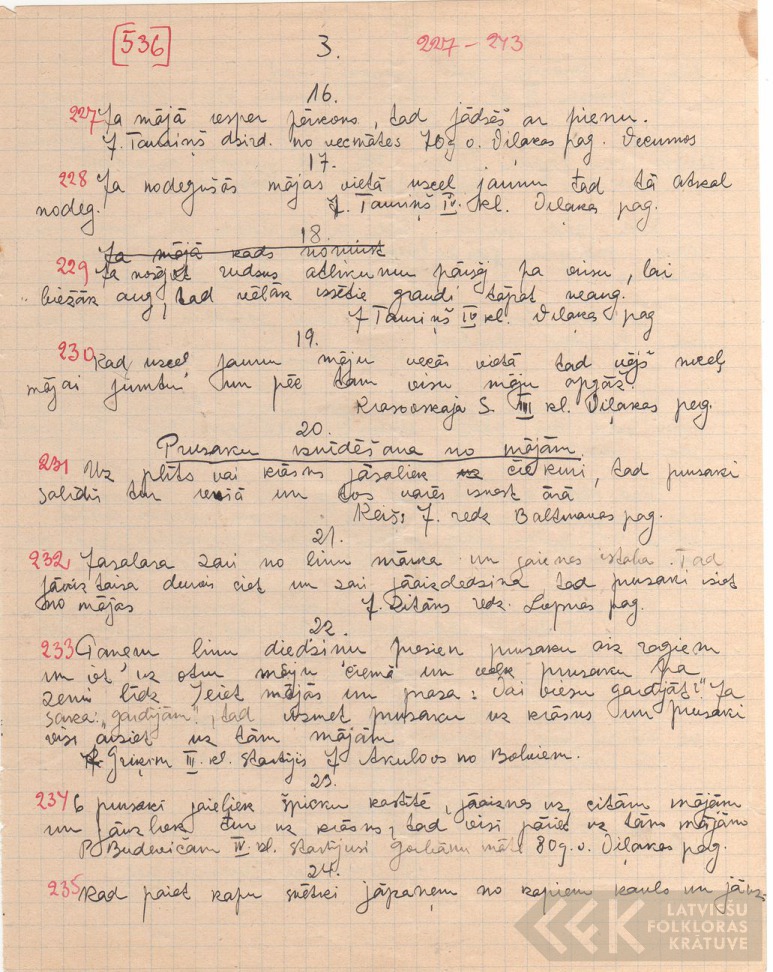 536 3. 227-243
16.
227 Ja mājā iesper pērkons, tad jādzēš ar pienu.
J. Tauriņš dzird. no vecmātes 70 g v. Viļakas pag. Vecumos
17.
228 Ja nodegušās mājas vietā uzceļ jaunu tad tā atkal
nodeg. J. Tauriņš IV. kl. Viļakas pag.
18.
Ja mājā kāds nomirst
229 Ja nosējot rudzus atlikumu pārsēj pa virsu, lai
biežāk aug, tad vēlāk izsētie graudi tāpat neaug.
J Tauriņš IV kl. Viļakas pag
19.
230 Kad uzceļ jaunu māju vecās vietā tad vējš noceļ
mājai jumtu un pēc tam visu māju apgāž.
Krasovskaja S. III kl. Viļakas pag.
20.
Prusaku iznīdēšana no mājām
231 Uz plīts vai krāsns jāsaliek čiekuri, tad prusaki
salīdīs tur iekšā un tos varēs iznest ārā
J. redz Baltinavas pag.
21.
232. Jāsalasa zari no linu mārka un jāienes istabā. Tad
jāaiztaisa durvis ciet un zari jāaizdedzina tad prusaki iziet
no mājas J. Ritāns redz. Liepnas pag.
22.
233 Paņem linu diedziņu piesien prusaku aiz ragiem
un iet uz otru māju ciemā un velk prusaku pa
zemi līdz. Ieiet mājās un prasa: "Vai viesu gaidījāt?" Ja
saka: "gaidījām", tad uzmet prusaku uz krāsns un prusaki
visi aiziet uz tām mājām
Griķim III. kl. stāstījis J Akulovs no Balviem.
23.
234 6 prusaki jāieliek špicku kastītē, jāaiznes uz citām mājām
un jāuzliek tur uz krāsns, tad visi pāriet uz tām mājām
P. Budevičam IV. kl. stāstījusi māte 80 g. v. Viļakas pag.
24.
235 Kad paiet kapu svētki jāpaņem no kapiem kauls un
LATVIEŠU
FOLKLORAS
KRĀTUVE